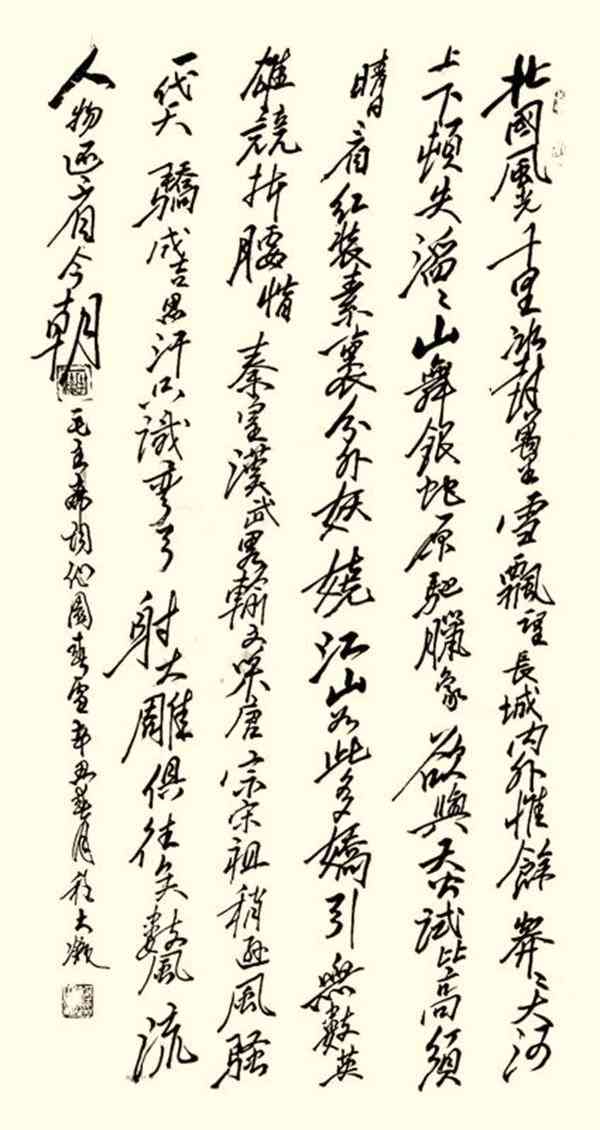 北國風光千里冰封萬里雪飄望長城内外惟餘莽々大河
上下頓失滔々山舞銀蛇原馳臘象欲與天公試比高須
晴日看紅裝素裹分外妖嬈江山如此多嬌引無數英
雄競折腰惜秦皇漢武略輸文采唐宗宋祖稍遜風騷
一代天驕成吉思汗只識彎弓射大雕俱往矣數風流
人物還看今朝
毛主席詞沁園春雪 月 大